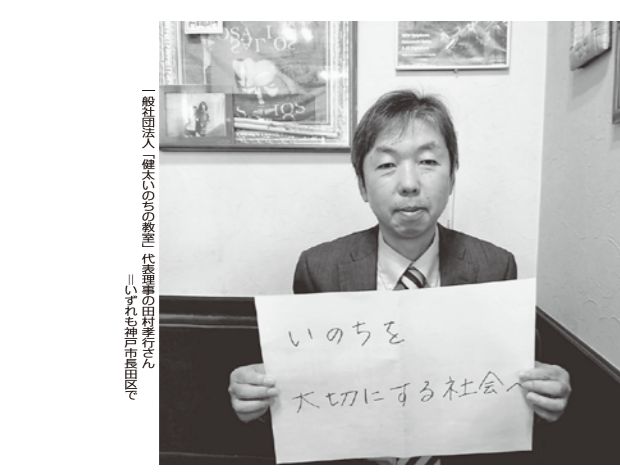 一般社団法人「健太いのちの教室」代表理事の田村孝行さん
＝いずれも神戸市長田区で
いのちを
大切にする社会へ